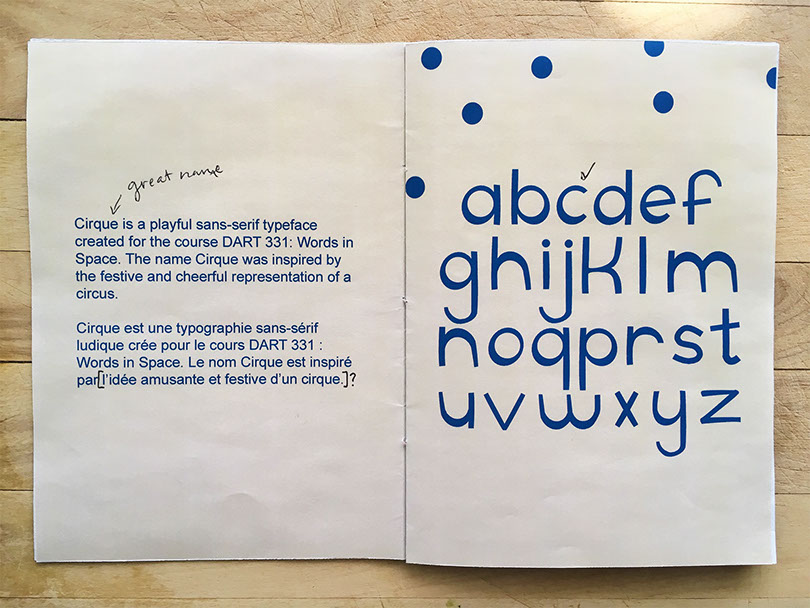 great name
Cirque is a playful sans-serif typeface
created for the course DART 331: Words in
Space. The name Cirque was inspired by
the festive and cheerful representation of a
circus.
Cirque est une typographie sans-sérif
ludique crée pour le cours DART 331 :
Words in Space. Le nom Cirque est inspiré
par[l'idée amusante et festive d'un cirque.]?
abcdef
ghijklm
noqprst
uvwxyz